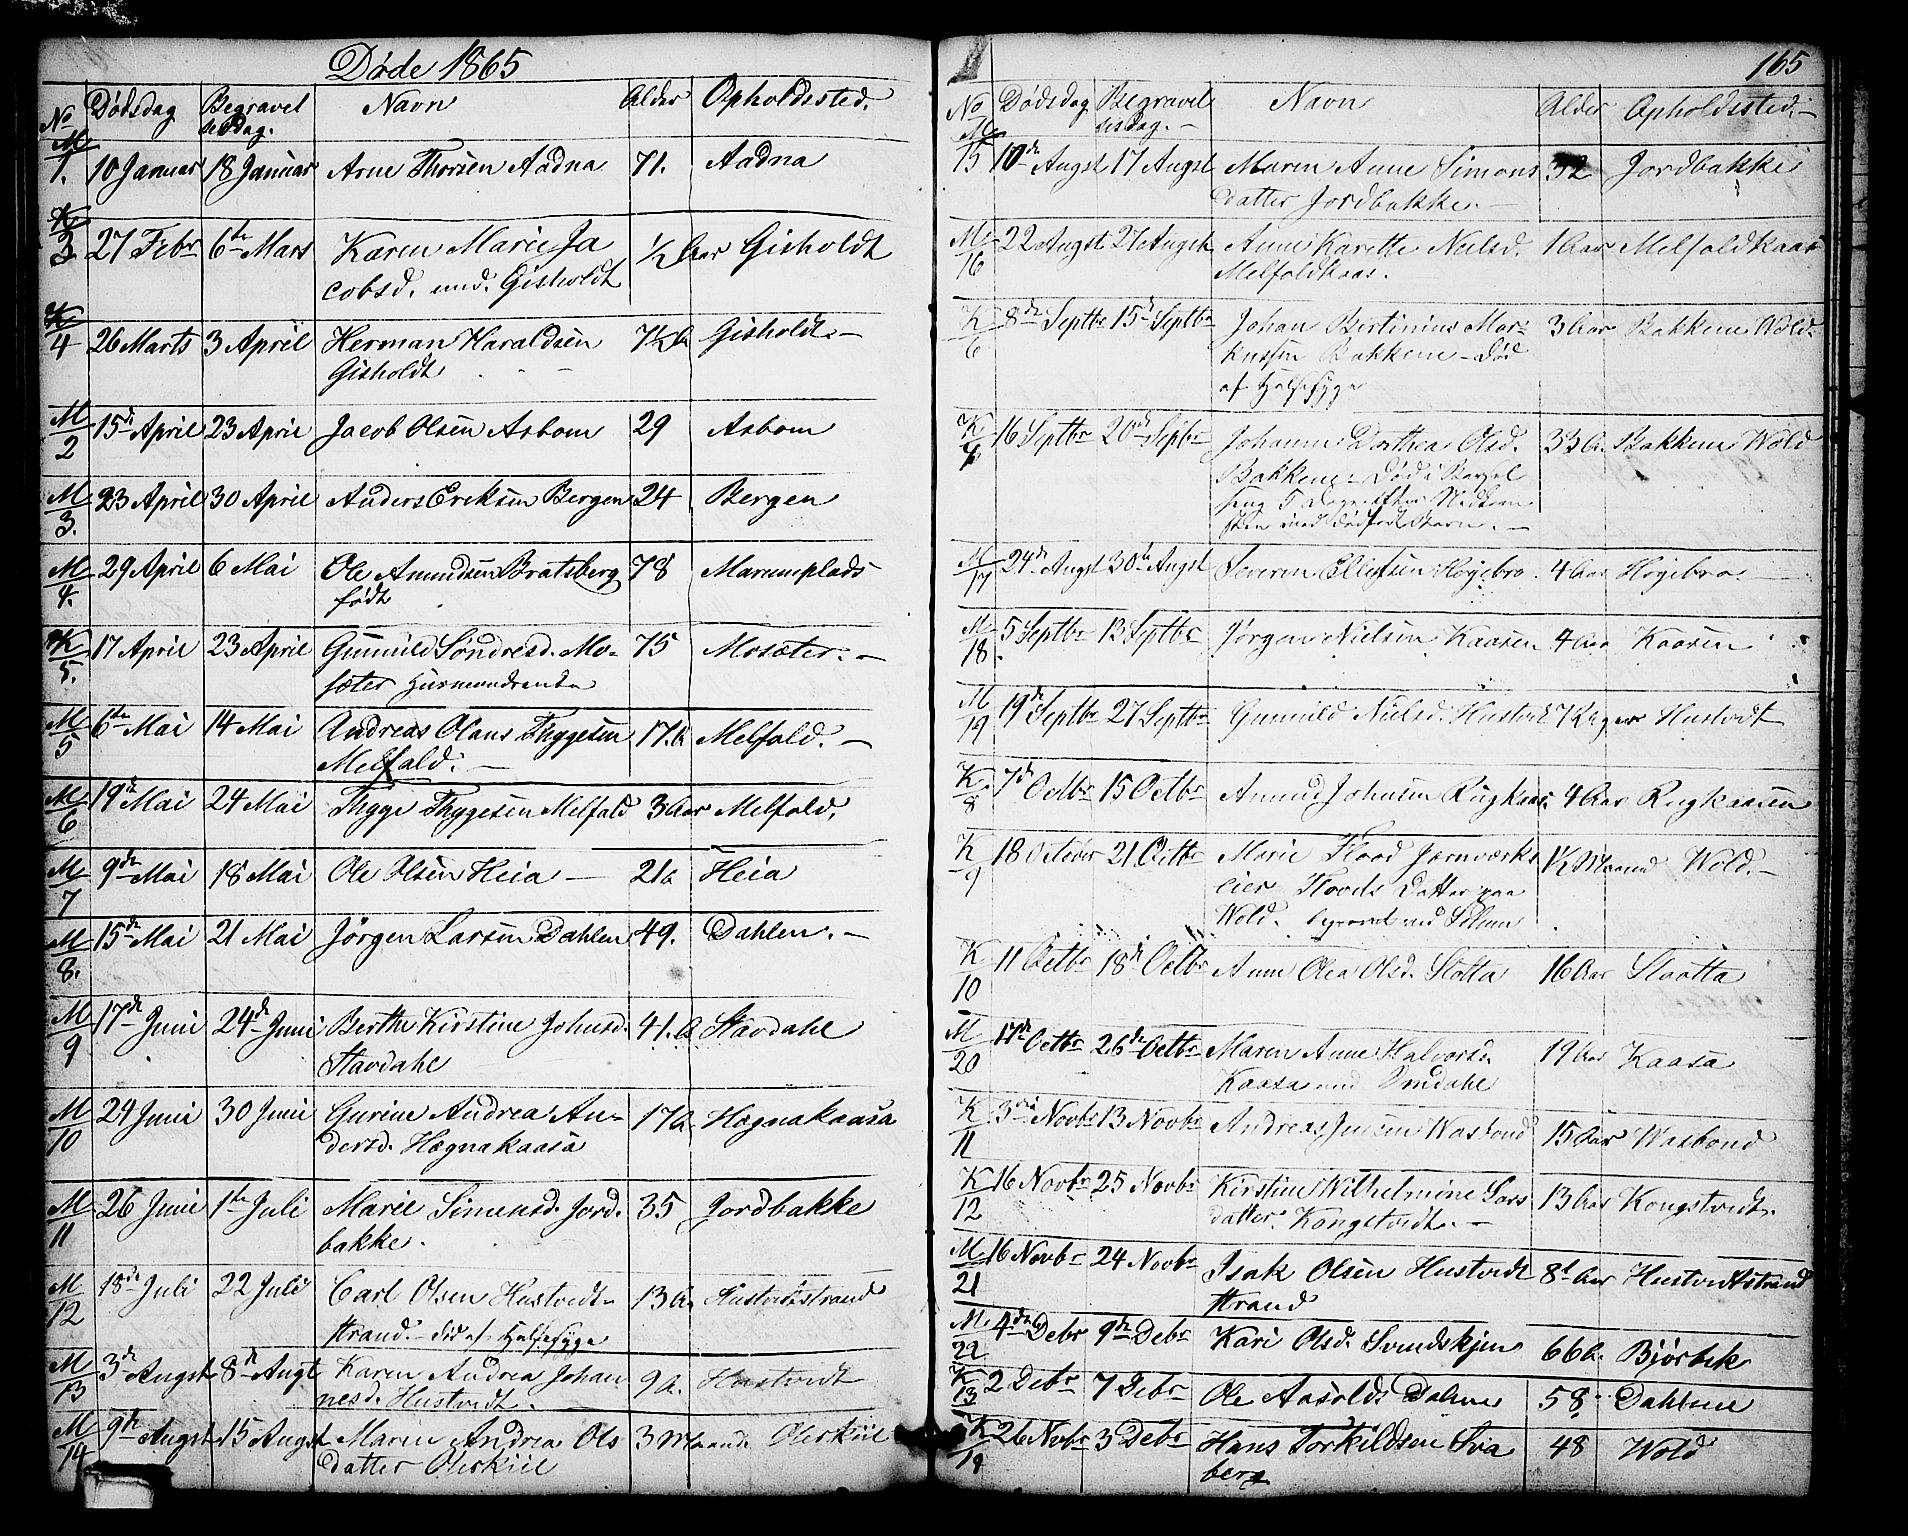 Døde 1865
No Dødsdag Begravel Navn Alder Opholdssted.
sesdag.
M
1. 10 Januar 18 Januar Arne Thorsen Aadna 71. Aadna
K
3 27 Febr 6te Mars Karen Marie Ja ½ Aar Gisholdt
cobsd. und. Gisholdt
K
4 26 Marts 3 April Herman Haraldsen 7½ A Gisholdt.-
Gisholdt
M
2 15de April 23 April Jacob Olsen Asbom 29 Asbom
M
3. 23 April 30 April Anders Eriksen Bergen 24 Bergen
M
4. 29 April 6 Mai Ole Amundsen Bratsberg 78 Marumplads
født
K
5. 17 April 23 April Gunnild Søndresd. Mo- 75 Mosæter.-
sæter
M
5 6te Mai 14 Mai Andreas Olaus Thygesen 17.A Melfald.-
Melfald.-
M
6 19de Mai 24 Mai Thyge Thygesen Melfald 3 Aar Melfald.
M
7 9de Mai 18 Mai Ole Olsen Heia - 21A Heia
M
8. 15de Mai 21 Mai Jörgen Larsen Dahlen 49. Dahlen.-
M
9 17de Juni 24de Juni Berthe Kirstine Johnsd. 41.A Stavdahl
Stavdahl
M
10 24 Juni 30 Juni Gurine Andrea An- 17A. Høgnakaasa
dersd. Høgnakaasa
M
11 26 Juni 1te Juli Marie Simensd. Jord. 35 Jordbakke
bakke.
M
12 18de Juli 22 Juli Carl Olsen Hustvedt- 13 A. Hustvedtstrand
strand.- død af Halsesyge
M
13 3de Augst 8de Augt Karen Andrea Johan 9 A. Hustvedt
nesd. Hustvedt.
M
14 9de Augst 15 Augst Maren Andrea Ols 3 Maaned Olerskiil
datter Olerskiil
165
No Dødsdag Begravel Navn Alder Opholdssted.-
sesdag.-
M
15 10de Augst 17 Augst Maren Anne Simons 32 Jordbakke
datter Jordbakke.-
M
16 22 Augst 27 Augst Anne Karette Nielsd. 1 Aar Melfaldkaas
Melfaldkaas.
K
6 8de Septbr 15de Septbr Johan Bertinius Mar- 3 Aar Bakkene Wold.
kussen Bakkene - Død
af Halsesyge
K
7. 16 Septbr 20de Septbr Johanne Dorthea Olsd. 33 A. Bakkene Wold
Bakkene - Død i Barsel
seng 5 Dage efter Nedkom
sten med dødfødt Barn.-
M
17 24de Augst 30te Augst Severin Ellefsen Høgebro. 4 Aar Høgebro.
M
18 5 Septbr 13 Septbr Jørgen Nielsen Kaasen 4 Aar Kaasen
M
19 19de Septbr 27 Septbr Gunnild Nielsd. Hustvedt 7 Uger Hustvedt
K
8 7de Octbr 15 Octbr Amund Johnsen Rugkaas. 4 Aar Rugkaasen
K
9 18 October 21 Octbr Marie Flood Jernværks 1½ Maaned Wold.-
eier Floods Datter paa
Wold. begravet ved Solum
K
10 11 Octbr 18de Octbr Anne Olea Olsd. Slotta 16 Aar Slaatta
M
20 17de Octbr 26de Octbr Maren Anne Halvorsd. 19 Aar Kaasa
Kaasa und
K
11 3die Novbr 13 Novbr Andreas Jensen Wasbond 15 Aar Wasbond
K
12 16 Novbr 25 Novbr Kirstine Wilhelmine Lars 13 Aar Kongstvedt.
datter Kongstvedt.-
M
21 16 Novbr 24 Novbr Isak Olsen Hustvedt 81 Aar Hustvedtstrand
strand
M
22 4de Debr 9de Debr Kari Olsd. Svendskjen 66 A. Bjørbek
K
13 2 Debr 7 Debr Ole Aasolds Dalene 58. Dahlene
K
14 26 Novbr 3 Debr Hans Torkildsen Sva 48 Wold
berg